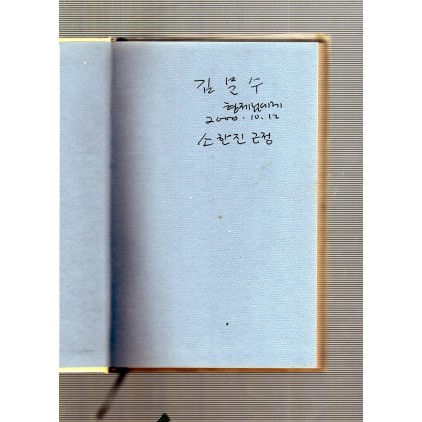 김 수
형제님에게
2000.10.12
소한진 근정